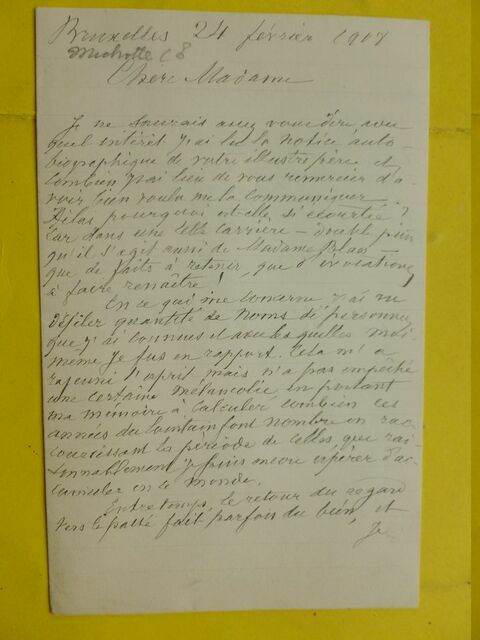 Bruxelles 24 février 1908
Michotte (8
Chère Madame
Je ne saurais assez vous dire avec
quel intérêt j'ai lu la notice auto-
biographique de votre illustre père et
combien j'ai lieu de vous remercier d'a
voir bien voulu me la communiquer
Hélas pourquoi est-elle si écourtée ?
Car dans une telle carrière – double puis
qu'il s'agit aussi de Madame Blaes –
que de faits à retenir, que d'évocations
à faire renaître !
En ce qui me concerne j'ai vu
défiler quantité de noms de personnes
que j'ai connues et avec lesquelles moi
même je fus en rapport. Cela m'a
rajeuni l'esprit mais n'a pas empêché
une certaine mélancolie en portant
ma mémoire à calculer combien ces
années du lointain font nombre en rac-
courcissant la période de celles que rai-
sonnablement je puis encore espérer d'ac
cumuler en ce monde.
Entretemps, le retour du regard
vers le passé fait parfois du bien, et
Je